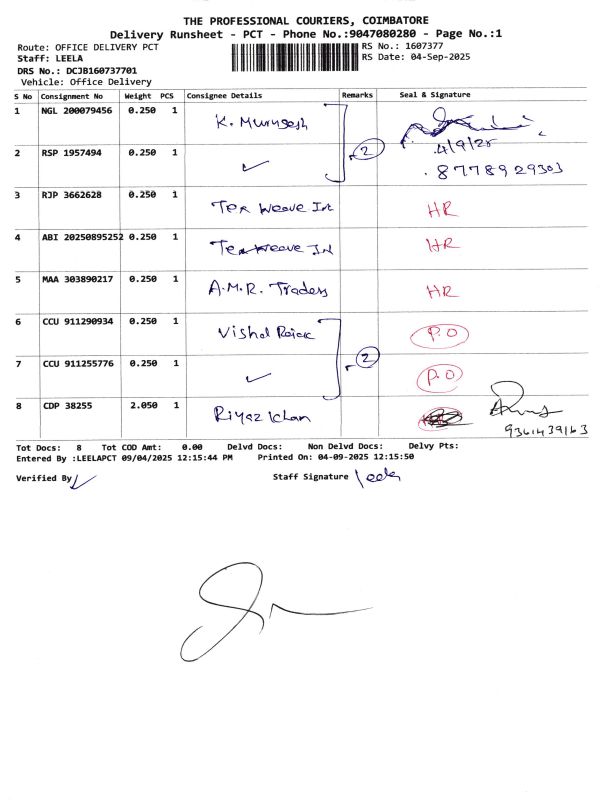 THE PROFESSIONAL COURIERS, COIMBATORE
Delivery Runsheet - PCT - Phone No.:9047080280 - Page No.:1
Route: OFFICE DELIVERY PCT
RS No.: 1607377
Staff: LEELA
RS Date: 04-Sep-2025
DRS No.: DCJB160737701
Vehicle: Office Delivery
S No Consignment No Weight PCS Consignee Details Remarks Seal & Signature
1 NGL 200079456 0.250 1 K. Murugesh
4/9/25
2 RSP 1957494 0.250 1 ✓ 2 8778929303
3 RJP 3662628 0.250 1 Tex Weave Int HR
4 ABI 20250895252 0.250 1 Tex Weave In HR
5 MAA 303890217 0.250 1 A.M.R. Traders HR
6 CCU 911290934 0.250 1 Vishal P.O
7 CCU 911255776 0.250 1 ✓ 2 P.O
8 CDP 38255 2.050 1 Riyaz Khan
9361439163
Tot Docs: 8 Tot COD Amt: 0.00 Delvd Docs: Non Delvd Docs: Delvy Pts:
Entered By :LEELAPCT 09/04/2025 12:15:44 PM Printed On: 04-09-2025 12:15:50
Verified By ✓ Staff Signature Leela